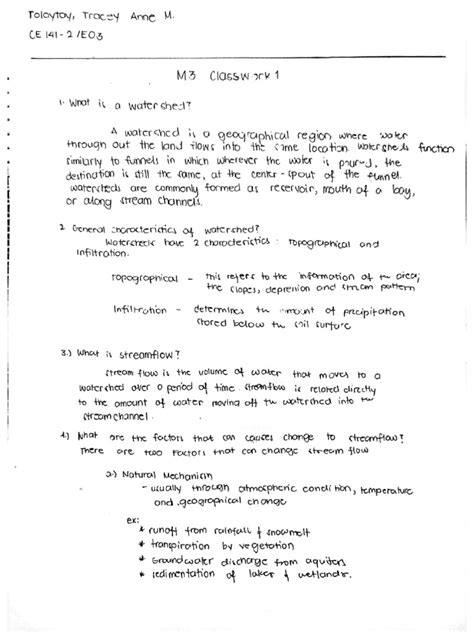 Toloytoy, Tracey Anne M.
CE 141-2/E03
M3 Classwork 1
1. What is a watershed?
A watershed is a geographical region where water
through out the land flows into the same location. Watersheds function
similarly to funnels in which wherever the water is poured, the
destination is still the same, at the center-spout of the funnel.
watersheds are commonly formed as reservoir, mouth of a bay,
or along stream channels.
2. General characteristics of watershed?
Watersheds have 2 characteristics: Topographical and
Infiltration.
Topographical - This refers to the information of the area;
the slopes, depression and stream pattern
Infiltration - determines the amount of precipitation
stored below the soil surface
3.) What is streamflow?
stream flow is the volume of water that moves to a
watershed over a period of time. streamflow is related directly
to the amount of water moving off the watershed into the
stream channel.
4.) What are the factors that can causes change to streamflow?
There are two factors that can change stream flow
a.) Natural Mechanism
- usually through atmospheric condition, temperature
and geographical change
ex:
* runoff from rainfall & snowmelt
* transpiration by vegetation
* Groundwater discharge from aquifers
* sedimentation of lakes & wetlands.